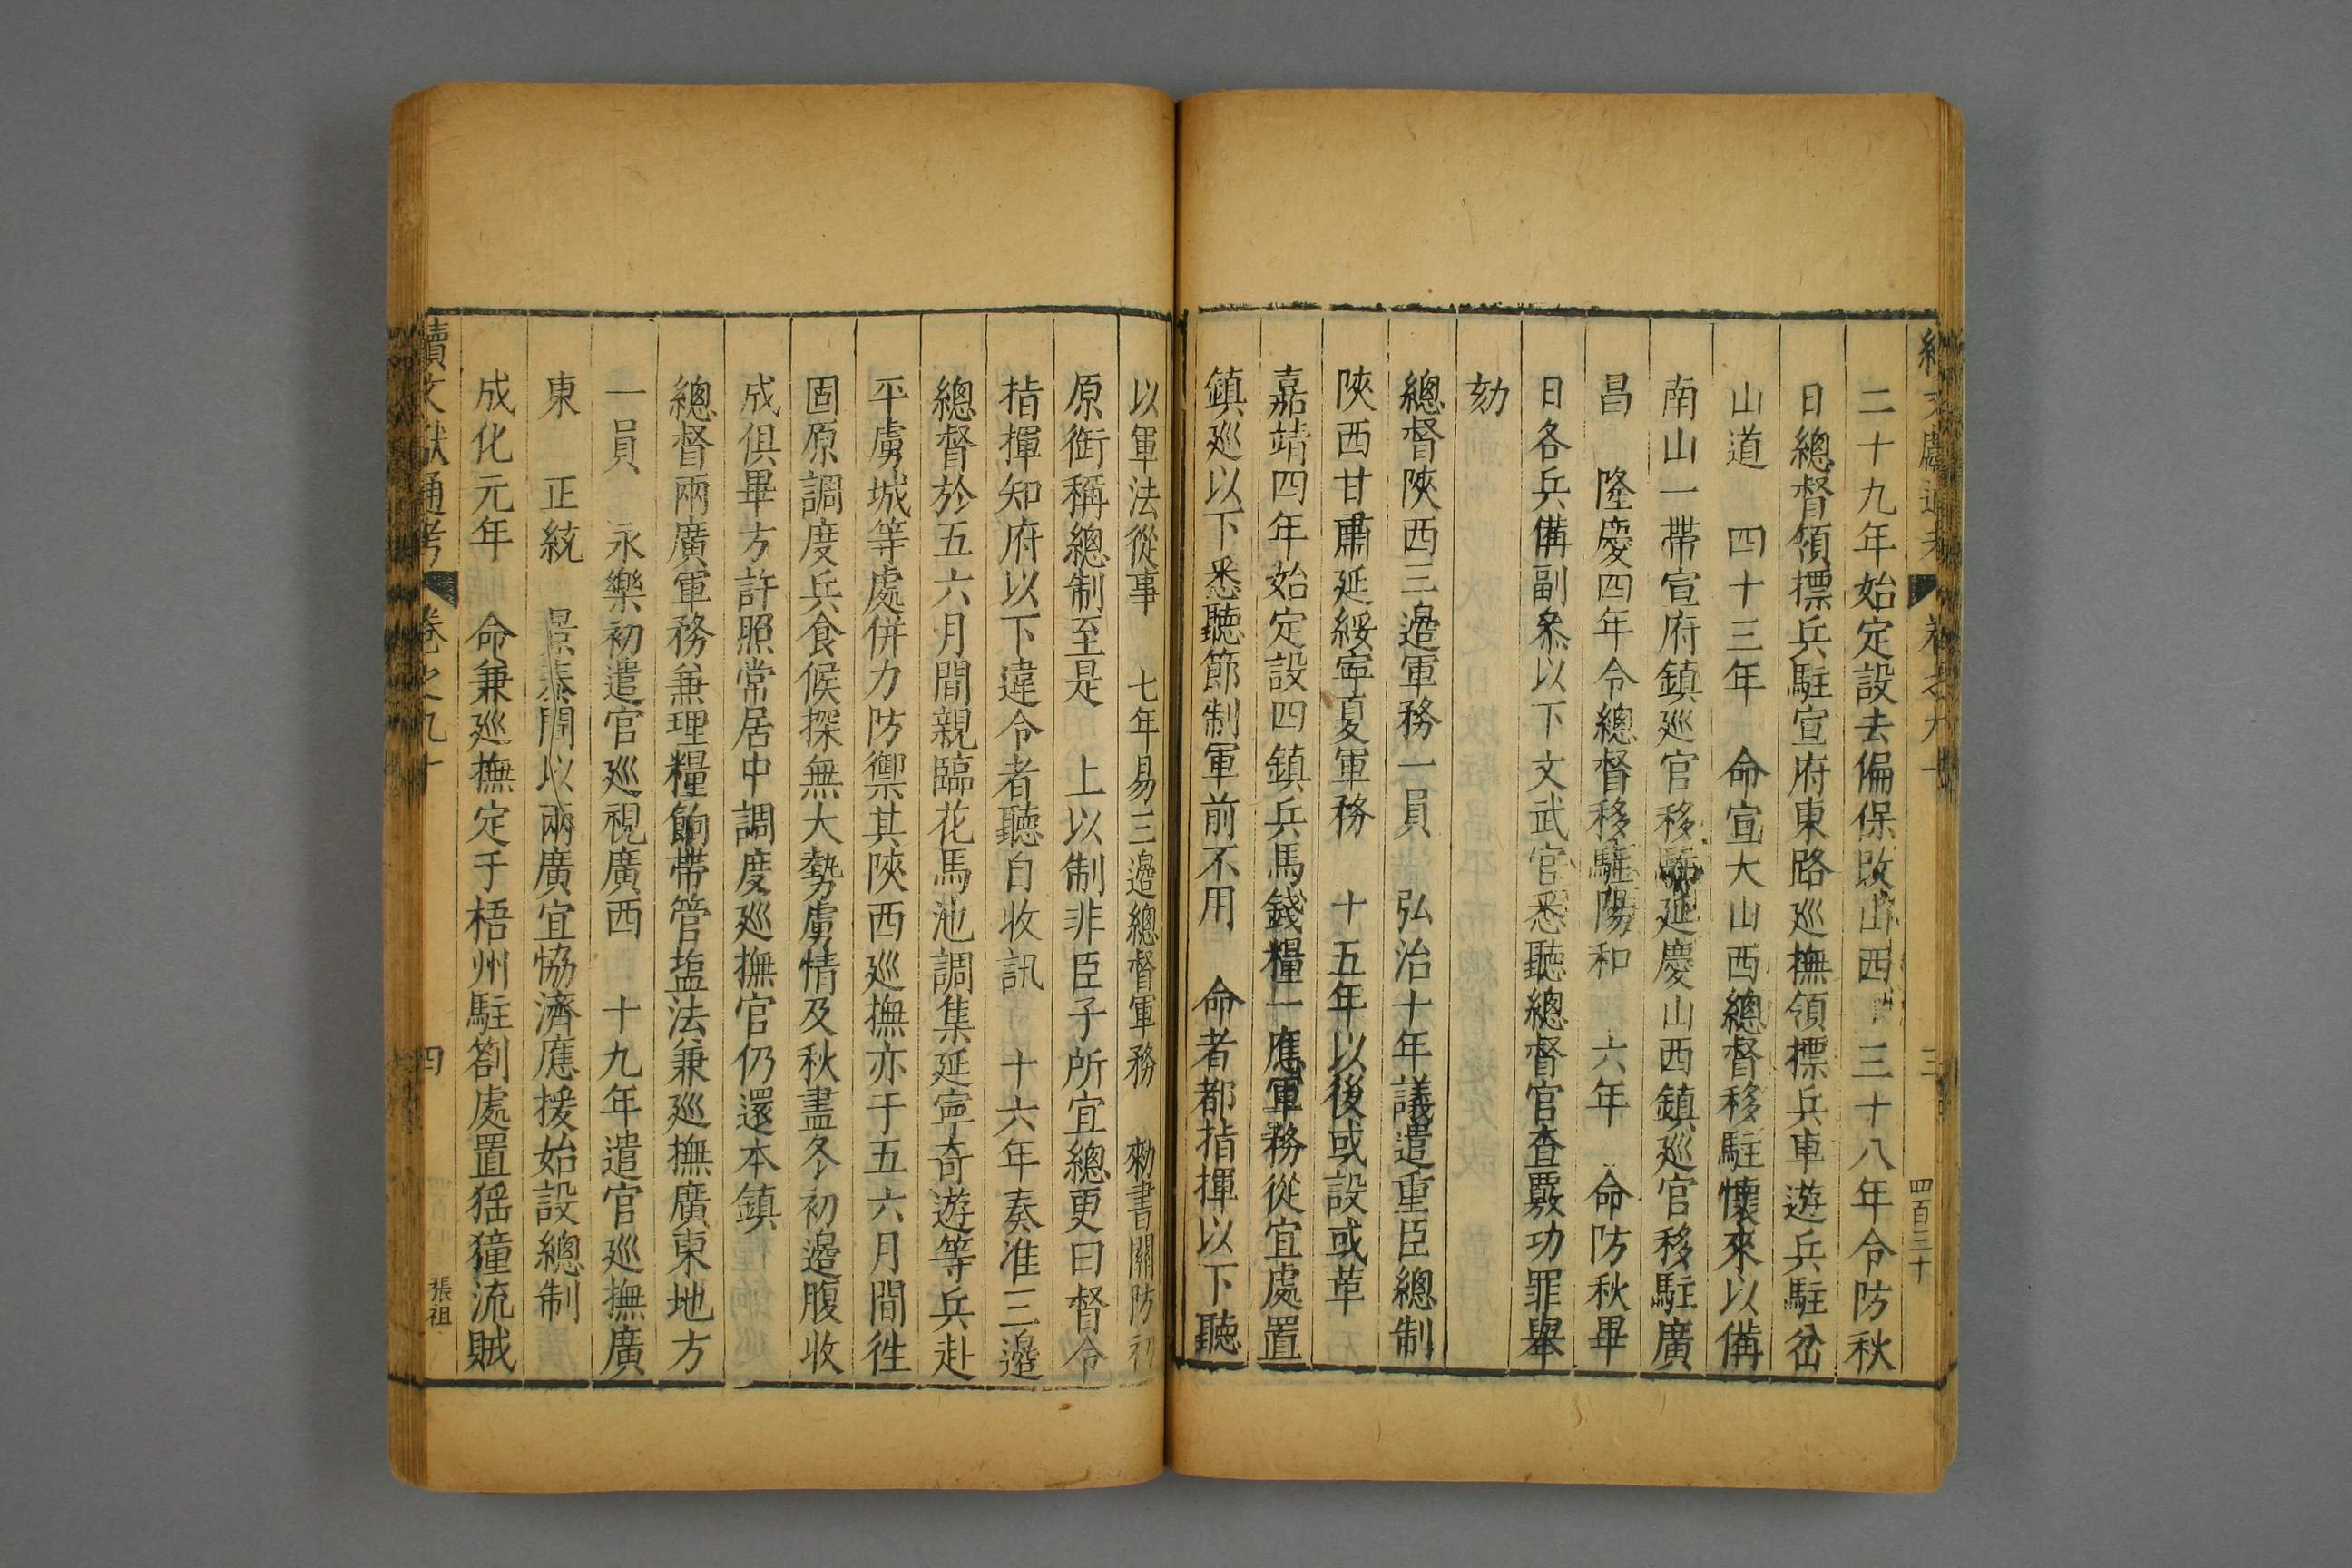 續文獻通考 卷之九十 三 四百三十
二十九年始定設去偏保改山西 三十八年令防秋
日總督領摽兵駐宣府東路巡撫領摽兵車遊兵駐岔
山道 四十三年 命宣大山西總督移駐懷來以備
南山一帶宣府鎮巡官移駐延慶山西鎮巡官移駐廣
昌 隆慶四年令總督移駐陽和 六年 命防秋畢
日各兵備副叅以下文武官悉聽總督官查覈功罪舉
劾
總督陝西三邊軍務一員 弘治十年議遣重臣總制
陝西甘肅延綏寧夏軍務 十五年以後或設或革
嘉靖四年始定設四鎮兵馬錢糧一應軍務從宜處置
鎮巡以下悉聽節制軍前不用 命者都指揮以下聽
以軍法從事 七年易三邊總督軍務 勑書關防初
原銜稱總制至是 上以制非臣子所宜總更曰督令
指揮知府以下違令者聽自收訊 十六年奏准三邊
總督於五六月間親臨花馬池調集延寧奇遊等兵赴
平虜城等處併力防禦其陝西巡撫亦于五六月間徃
固原調度兵食候探無大勢虜情及秋盡冬初邊腹收
成俱畢方許照常居中調度巡撫官仍還本鎮
總督兩廣軍務兼理糧餉帶管塩法兼巡撫廣東地方
一員 永樂初遣官巡視廣西 十九年遣官巡撫廣
東 正統 景泰間以兩廣宜協濟應援始設總制
成化元年 命兼巡撫定于梧州駐劄處置猺獞流賊
續文獻通考 卷之九十 四 張祖